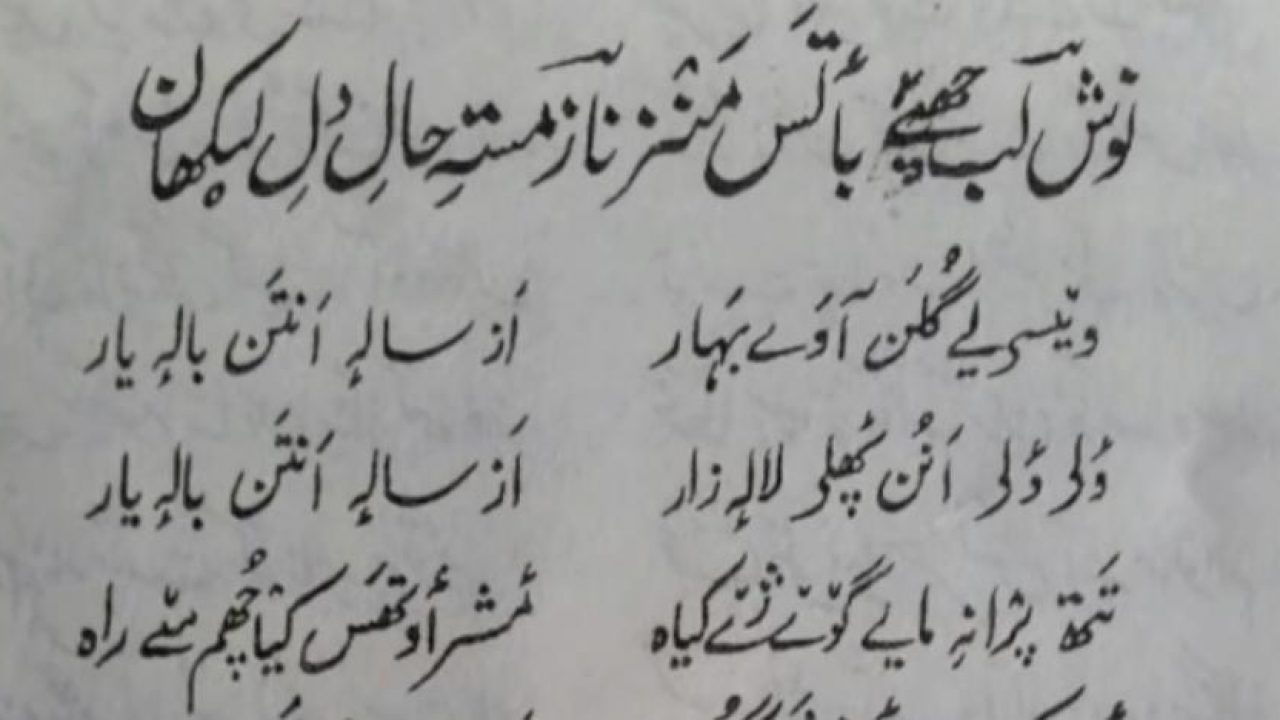 نوش لب چھیے باٹس منٛز ناز مستہِ حالِ دِل لیکھان
ویٚسی یے گُلَن آوے بَہار اَز سالہٕ اَنتَن بالہٕ یار
ؤلی ؤلی اَنُن پھُلی لالہٕ زار اَز سالہٕ اَنتَن بالہٕ یار
تَتھ پرٛانہِ مایے گوٚے ژےٚ کیاہ مٔشرأوتھَس کیٚا چھُم سےٚ راہ